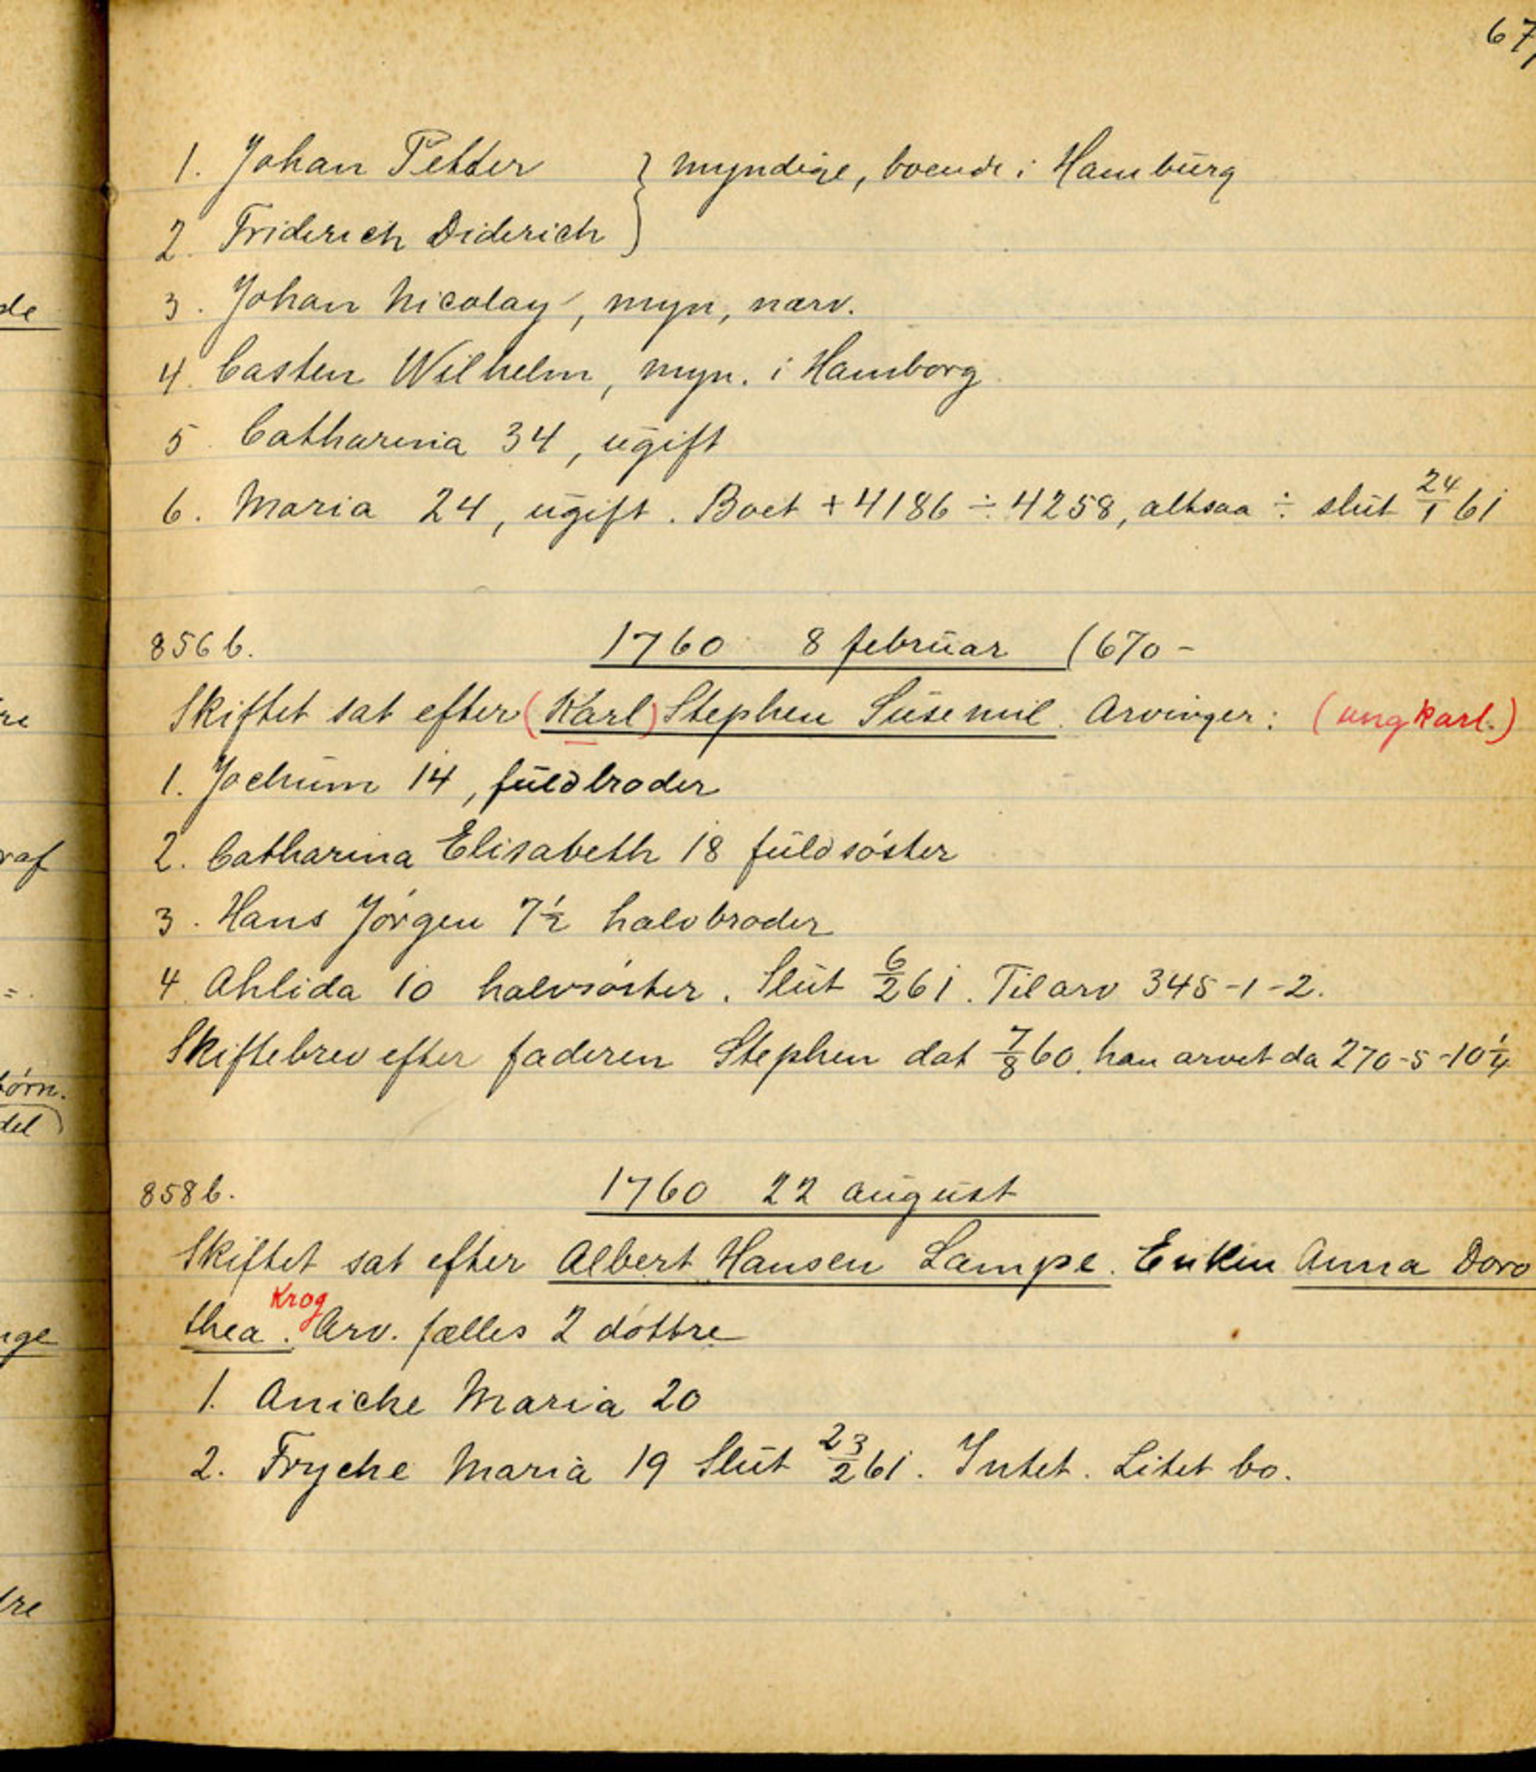 67,
1. Johan Petter } myndige, boende i Hamburg
2. Friderich Diderich }
3. Johan Nicolay, myn, nærv.
4. Casten Wilhelm, myn. i Hamborg
5. Catharina 34, ugift
6. Maria 24, ugift. Boet + 4186 ÷ 4258, altsaa ÷ slut 24/1 61
856 b. 1760 8 februar (670 -
Skiftet sat efter (Karl) Stephen Susemil. Arvinger: (ungkarl.)
1. Jochum 14, fuldbroder
2. Catharina Elisabeth 18 fuldsöster
3. Hans Jörgen 7½ halvbroder
4. Ahlida 10 halvsöster. Slut 6/2 61. Til arv 345-1-2.
Skiftebrev efter faderen Stephen dat 7/8 60, han arvet da 270-5-10¼
858 b. 1760 22 august
Skiftet sat efter Albert Hansen Lampe. Enken Anna Doro
Krog
thea. Arv. fælles 2 döttre
1. Aniche Maria 20
2. Fryche Maria 19 Slut 23/2 61. Intet. Litet bo.
de
re
raf
=.
börn.
del)
nge
tre